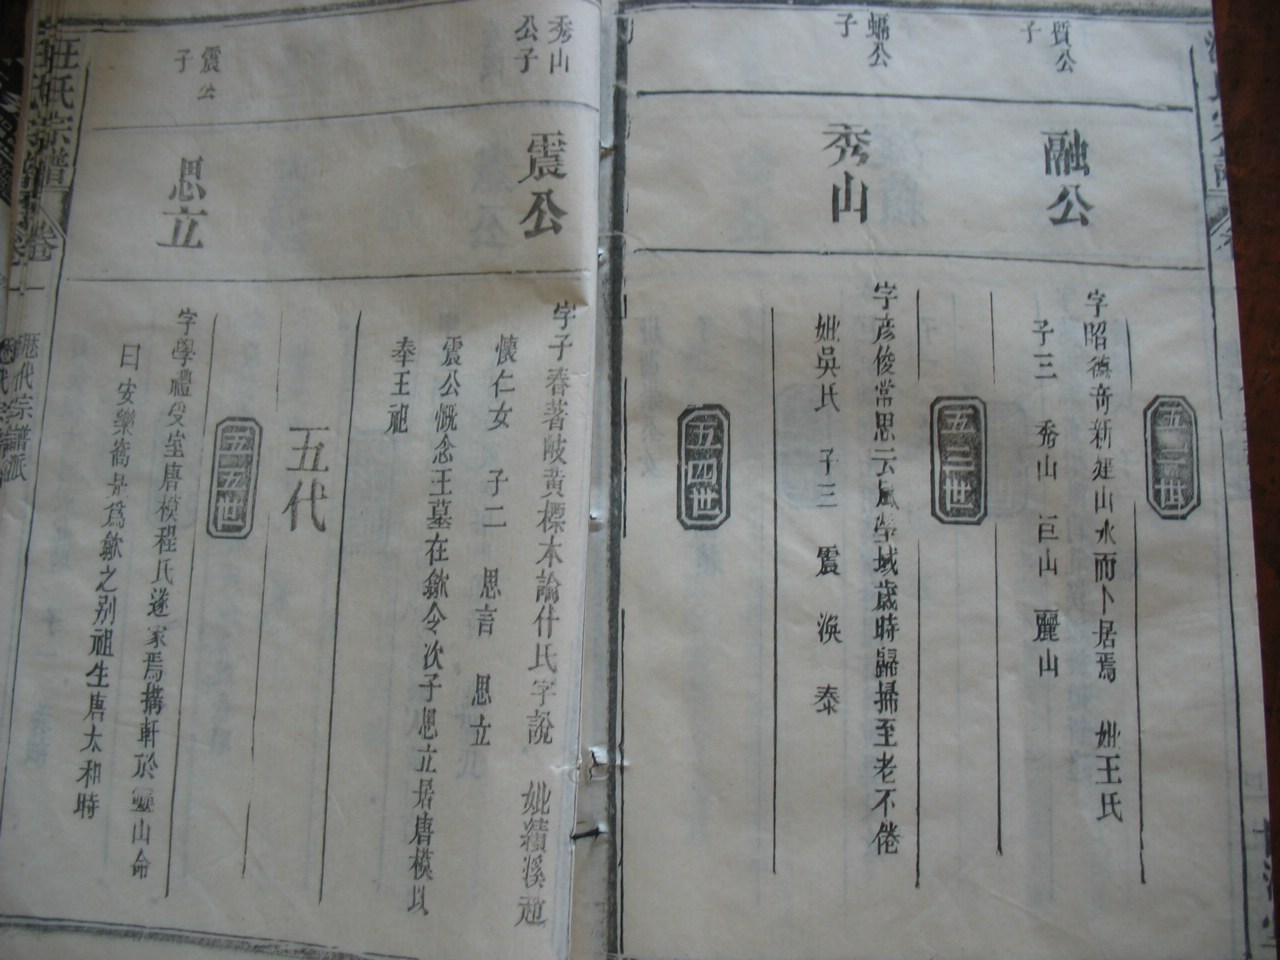 五二世
質公
子
融公
字昭德奇新建山水而卜居焉 妣王氏
子三 秀山 巨山 麗山
五三世
蟎公
子
秀山
字彥俊常思云嵐塋域歲時歸掃至老不倦
妣吳氏 子三 震 渙 泰
五四世
秀山
公子
震公
字子春著岐黃標本論什氏字說 妣績溪趙
懷仁女 子二 思言 思立
震公慨念王墓在歙令次子思立居唐模以
奉王祀
五代
五五世
震公
子
思立
字學禮受室唐模程氏遂家焉搆軒於靈山命
曰安樂窩是爲歙之別祖生唐太和時
汪氏宗譜
卷
歷代宗譜派